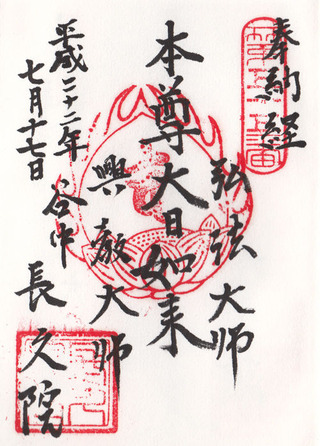 奉納経
弘法大師
本尊大日如来
興教大師
平成二十二年
七月十七日
谷中 長久院